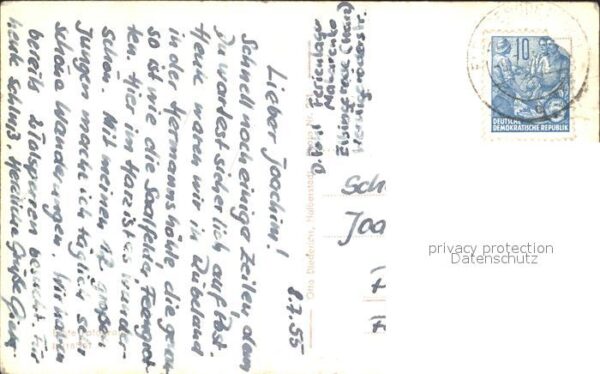 8.7.55
Lieber Joachim!
Schnell noch einige Zeilen, denn
Du wartest sicherlich auf Post.
Heute waren wir in Rübeland
in der Hermannshöhle, die genau
so ist wie die Saalfelder Feengrot-
ten. Hier im Harz ist es wunder-
schön. Mit meinen 12 großen
Jungen mache ich täglich sehr
schöne Wanderungen. Wir haben
bereits 2 Talsperren besucht. Für
heute Schluß, herzliche Grüße
Ferienlager
Makarenko
Elbingerode (Harz)
Wernigeroderstr.
Otto Diederichs, Halberstadt
Sch
Joa
10
DEUTSCHE
DEMOKRATISCHE REPUBLIK
privacy protection
Datenschutz